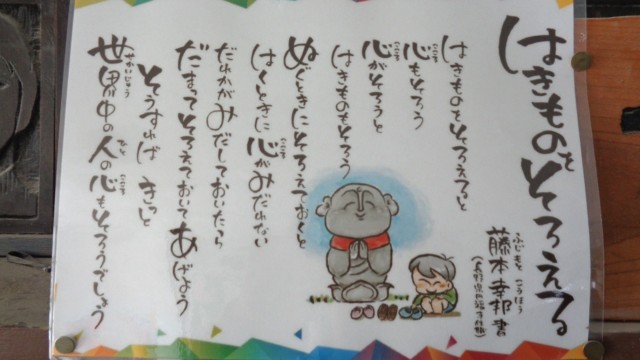 はきものをそろえる
藤本幸邦書
はきものをそろえると
心もそろう
心がそろうと
はきものもそろう
ぬぐときにそろえておくと
はくときに心がみだれない
だれかがみだしておいたら
だまってそろえておいてあげよう
そうすれば きっと
世界中の人の心もそろうでしょう